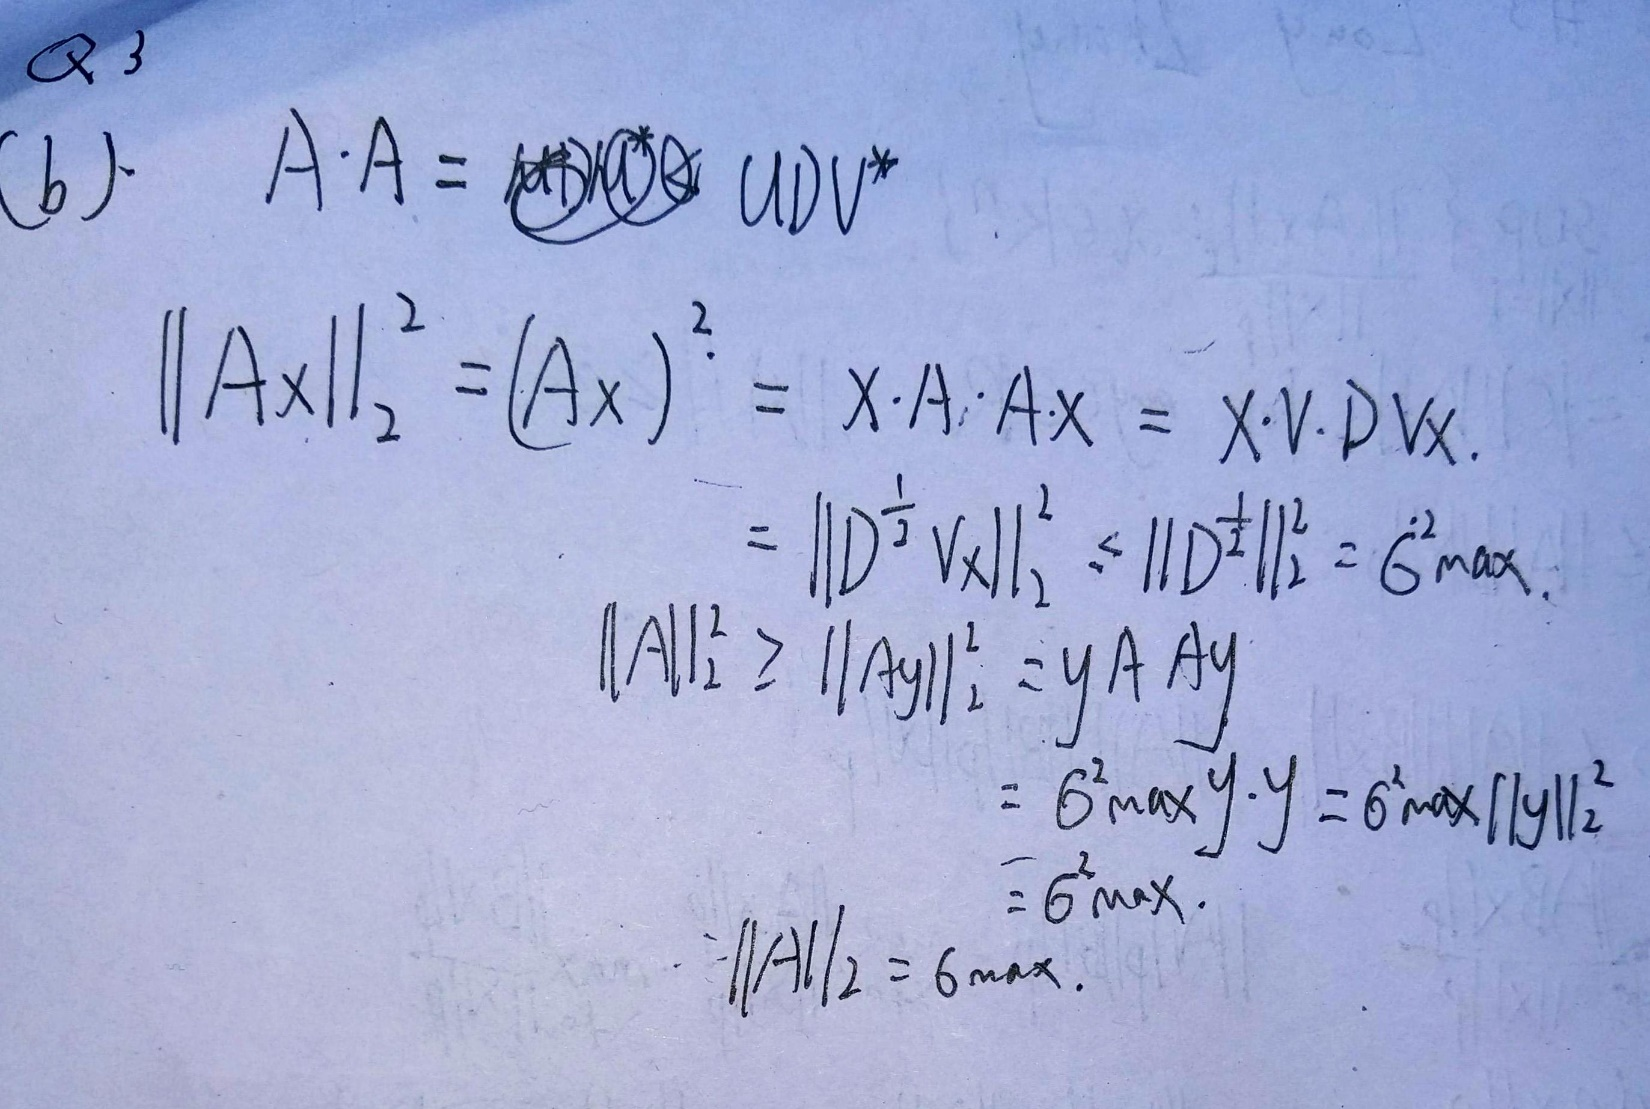 Q 3
(b). A·A = UDV*
||Ax||₂² = (Ax)² = X·A·A·X = X·V·D Vx.
= ||D^½ Vx||₂² ≤ ||D^½||₂² = 6²max.
||A||₂² ≥ ||Ay||₂² = y A Ay
= 6²max y·y = 6²max ||y||₂²
= 6²max.
||A||₂ = 6max.